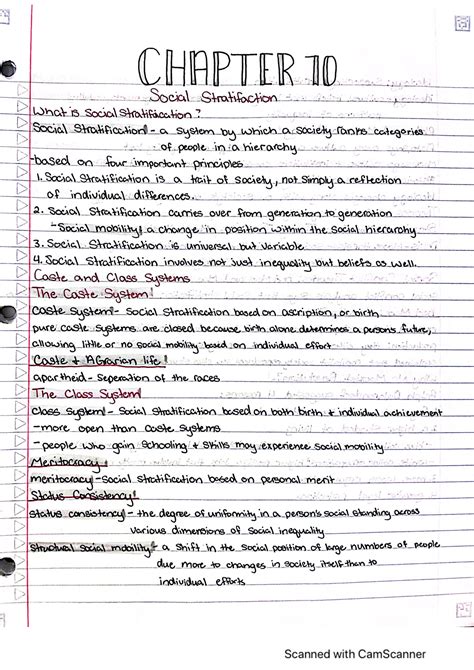 CHAPTER 10
Social Stratifaction
What is Social Stratification?
Social Stratification!- a system by which a society ranks categories
of people in a hierarchy
-based on four important principles
1. Social Stratification is a trait of society, not simply a reflection
of individual differences.
2. Social Stratification carries over from generation to generation
-Social mobility! a change in position within the social hierarchy
3. Social Stratification is universal but variable
4. Social Stratification involves not just inequality but beliefs as well.
Caste and Class Systems
The Caste System!
Caste System!- Social Stratification based on ascription, or birth
pure caste systems are closed because birth alone determines a persons future,
allowing little or no social mobility based on individual effort
Caste & Agrarian life!
apartheid- Seperation of the races
The Class System!
Class System!- Social Stratification based on both birth & individual achievement
-more open than caste systems
-people who gain schooling & skills may experience social mobility
Meritocracy!
meritocracy!-Social Stratification based on personal merit
Status Consistency!
status consistency!- the degree of uniformity in a person's social standing across
various dimensions of social inequality
Structual social mobility!- a shift in the social position of large numbers of people
due more to changes in society itself than to
individual efforts
Scanned with CamScanner